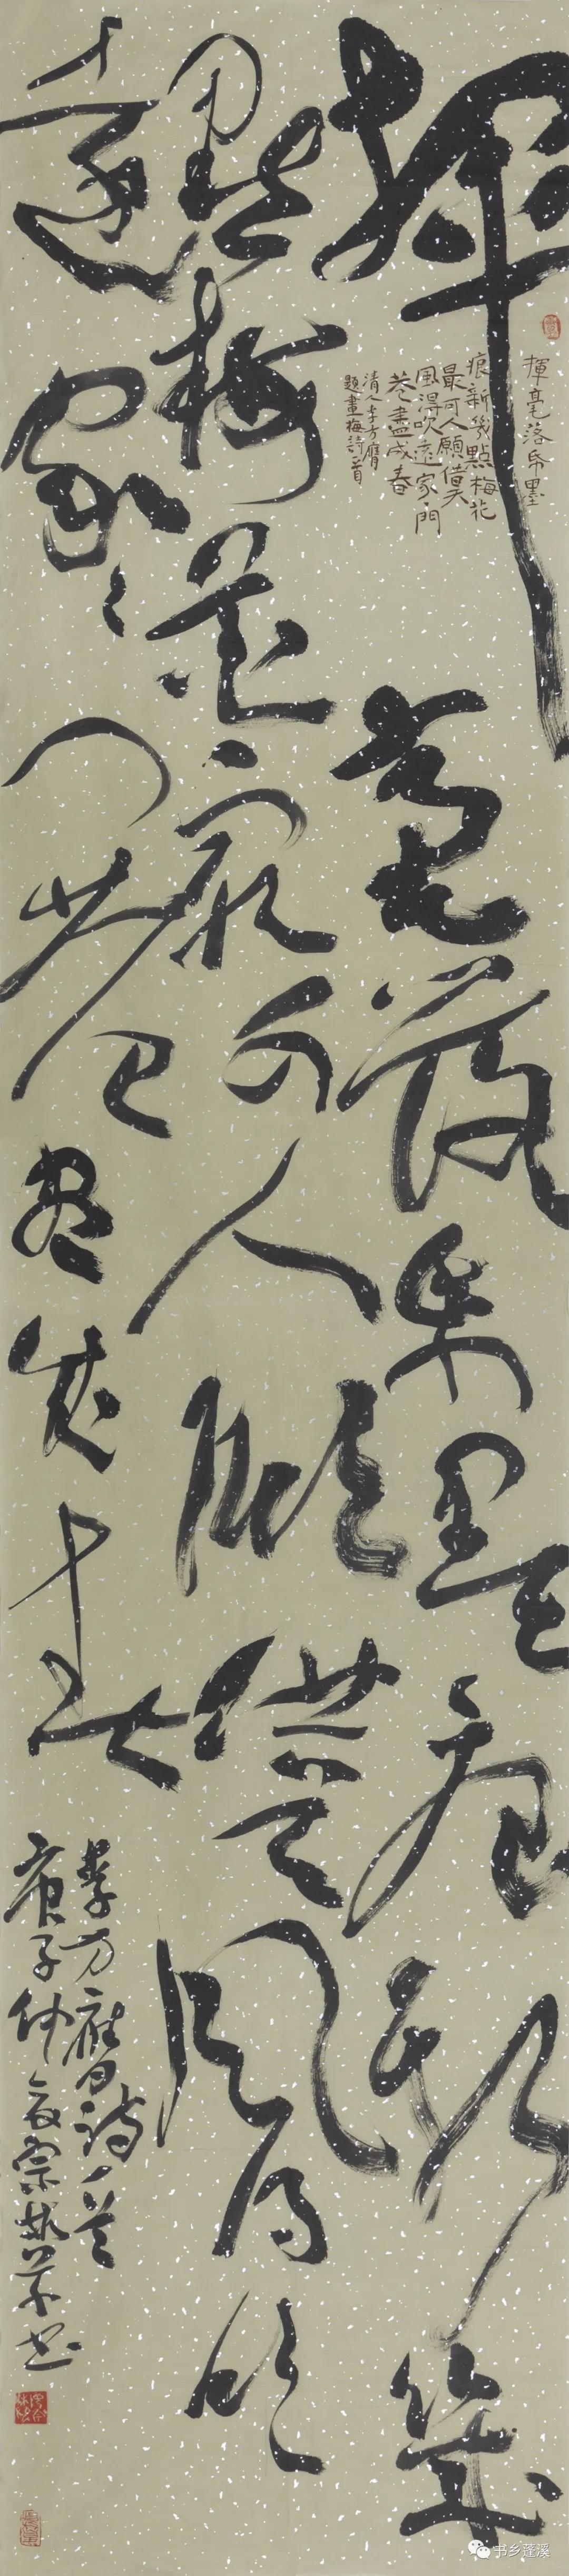 揮毫落帋墨痕新幾
點梅花最可人願借天風得吹
遠家〻門巷盡成春
揮毫落帋墨
痕新幾點梅花
最可人願借天
風得吹遠家〻門
巷盡成春
清人李方膺
題畫梅詩一首
李方膺詩一首
庚子仲夏宗
书乡蓬溪